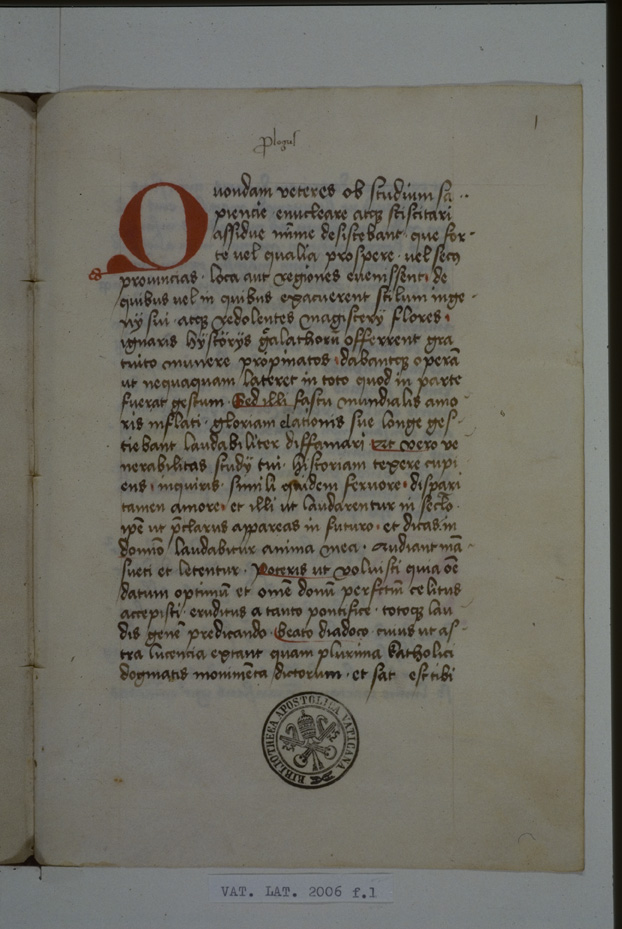 1
ꝓlogus
Quondam veteres ob studium sa
piencie enucleare atqꝫ sciscitari
assidue minime desistebant · que for
te vel qualia prospere · vel secꝯ
prouincias · loca aut regiones euenissent · de
quibus vel in quibus exacuerent stilum inge
nÿ sui · atqꝫ redolentes magisterÿ flores ·
ignaris hÿstorÿs offerrent gra
tuito munere propinatos · dabantqꝫ operā
ut nequaquam lateret in toto quod in parte
fuerat gestum · Sed illi fastu mundialis amo
ris inflati · gloriam elationis sue longe ges
tiebant laudabiliter diffamari Ut vero ve
nerabilitas studÿ tui · historiam texere cupi
ens · inquiris · simili quidem feruore · dispari
tamen amore · et illi ut laudarentur in sec̄lo ·
ip̄e ut p̄clarus appareas in futuro · et dicas in
domīo laudabitur anima mea · Audiant mā
sueti et letentur · Poteris ut voluisti quia oē
datum optimū et om̄e donū perfectū celitus
accepisti · eruditus a tanto pontifice · totoqꝫ lau
dis genē predicando · Beato diadoco · cuius ut as
tra lucencia extant quam plurima katholici
dogmatis monimēta dictorum · et sat est tibi
BIBLIOTHECA APOSTOLICA VATICANA
VAT. LAT. 2006 f.1